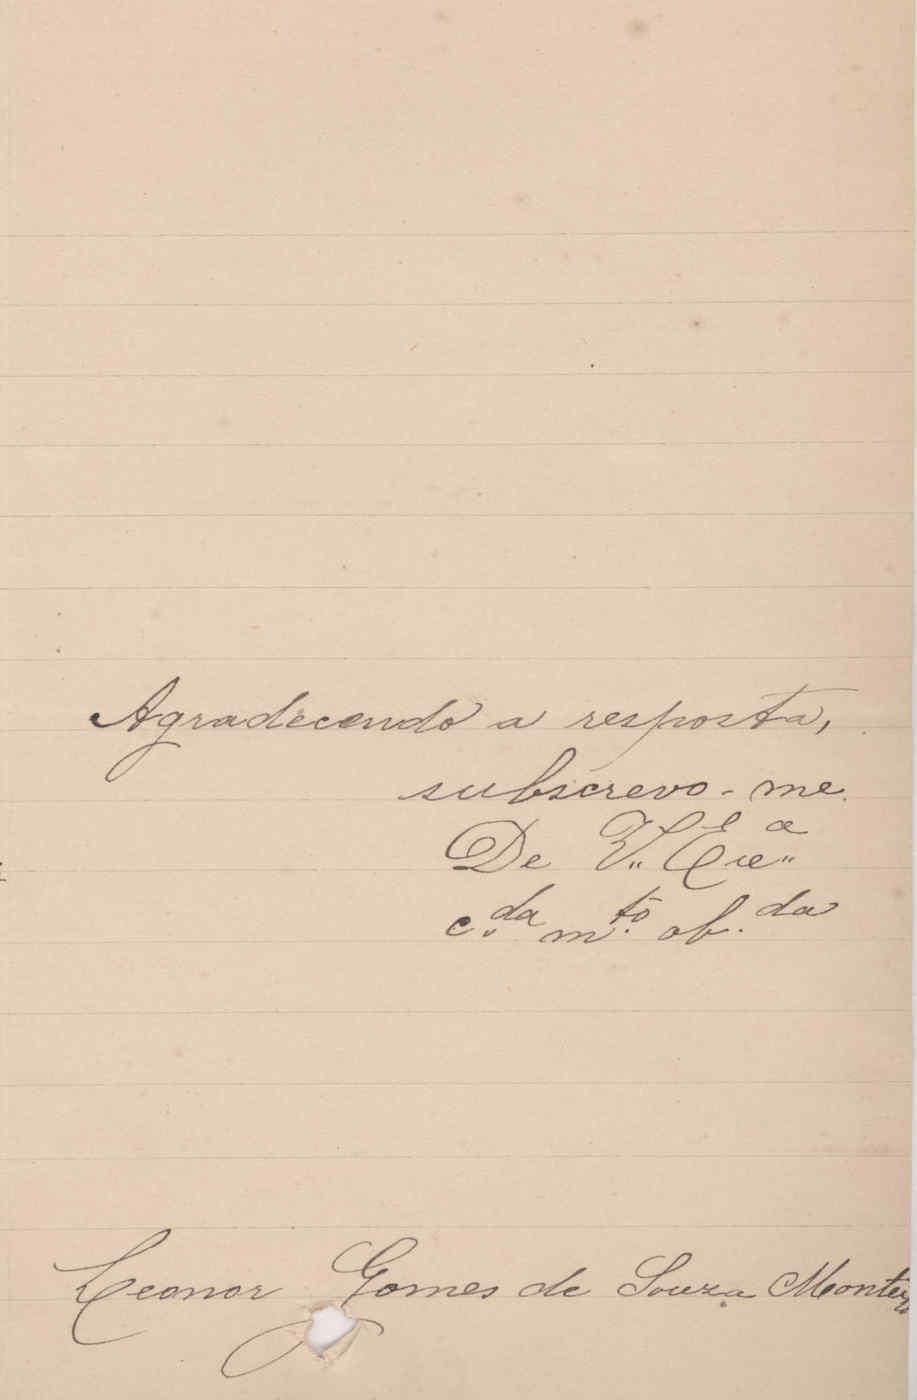 Agradecendo a resposta,
subscrevo-me.
De V. Exc.ª
c.da m.to ob.da
Leonor Gomes de Souza